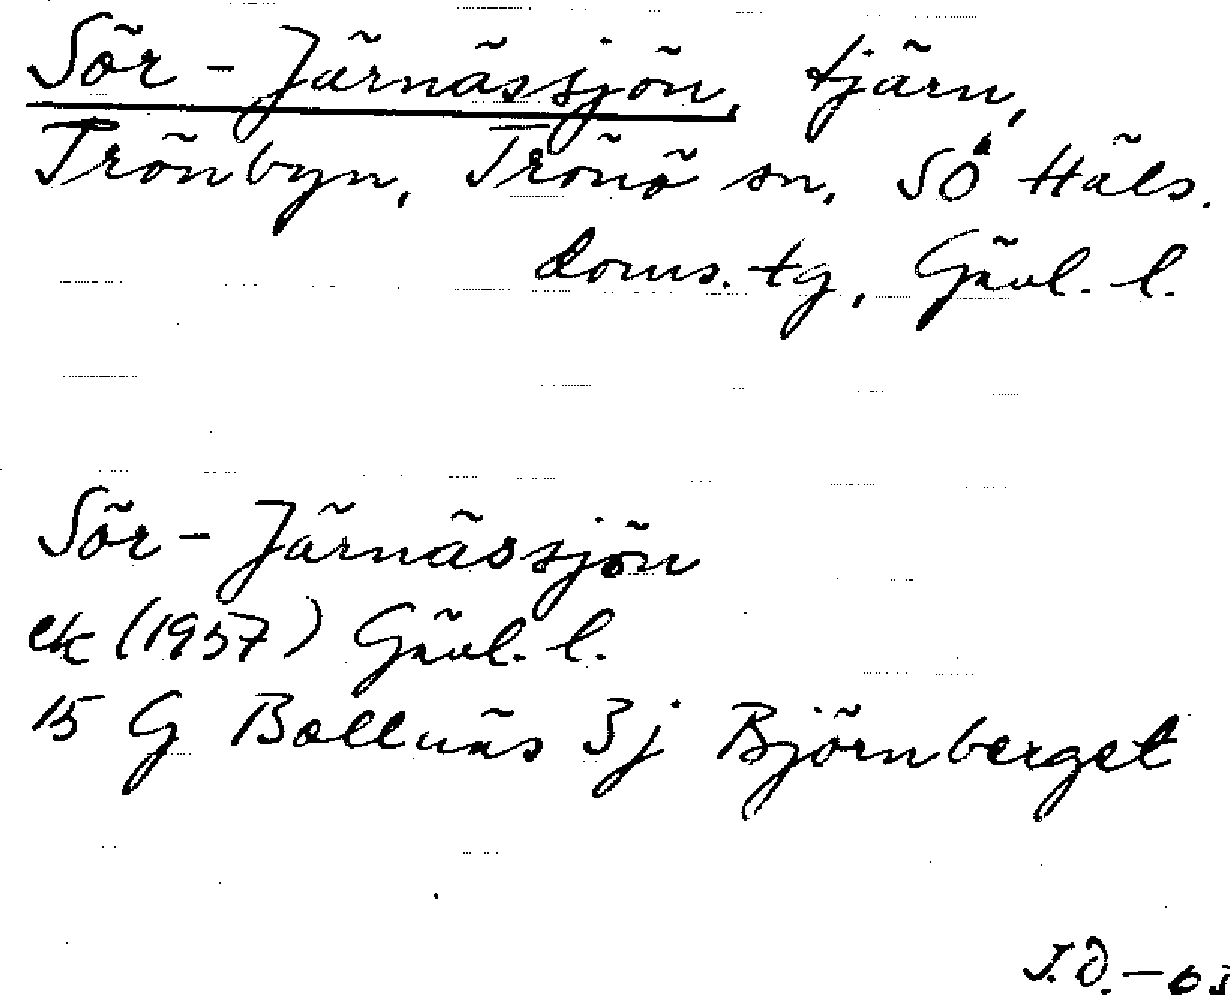 Sör-Järnässjön, tjärn,
Trönbyn, Trönö sn, SÖ Häls.
doms. tg, Gävl. l.
Sör-Järnässjön
ek (1957) Gävl. l.
15 G Bollnäs 3j Björnberget
J.Ö. -63